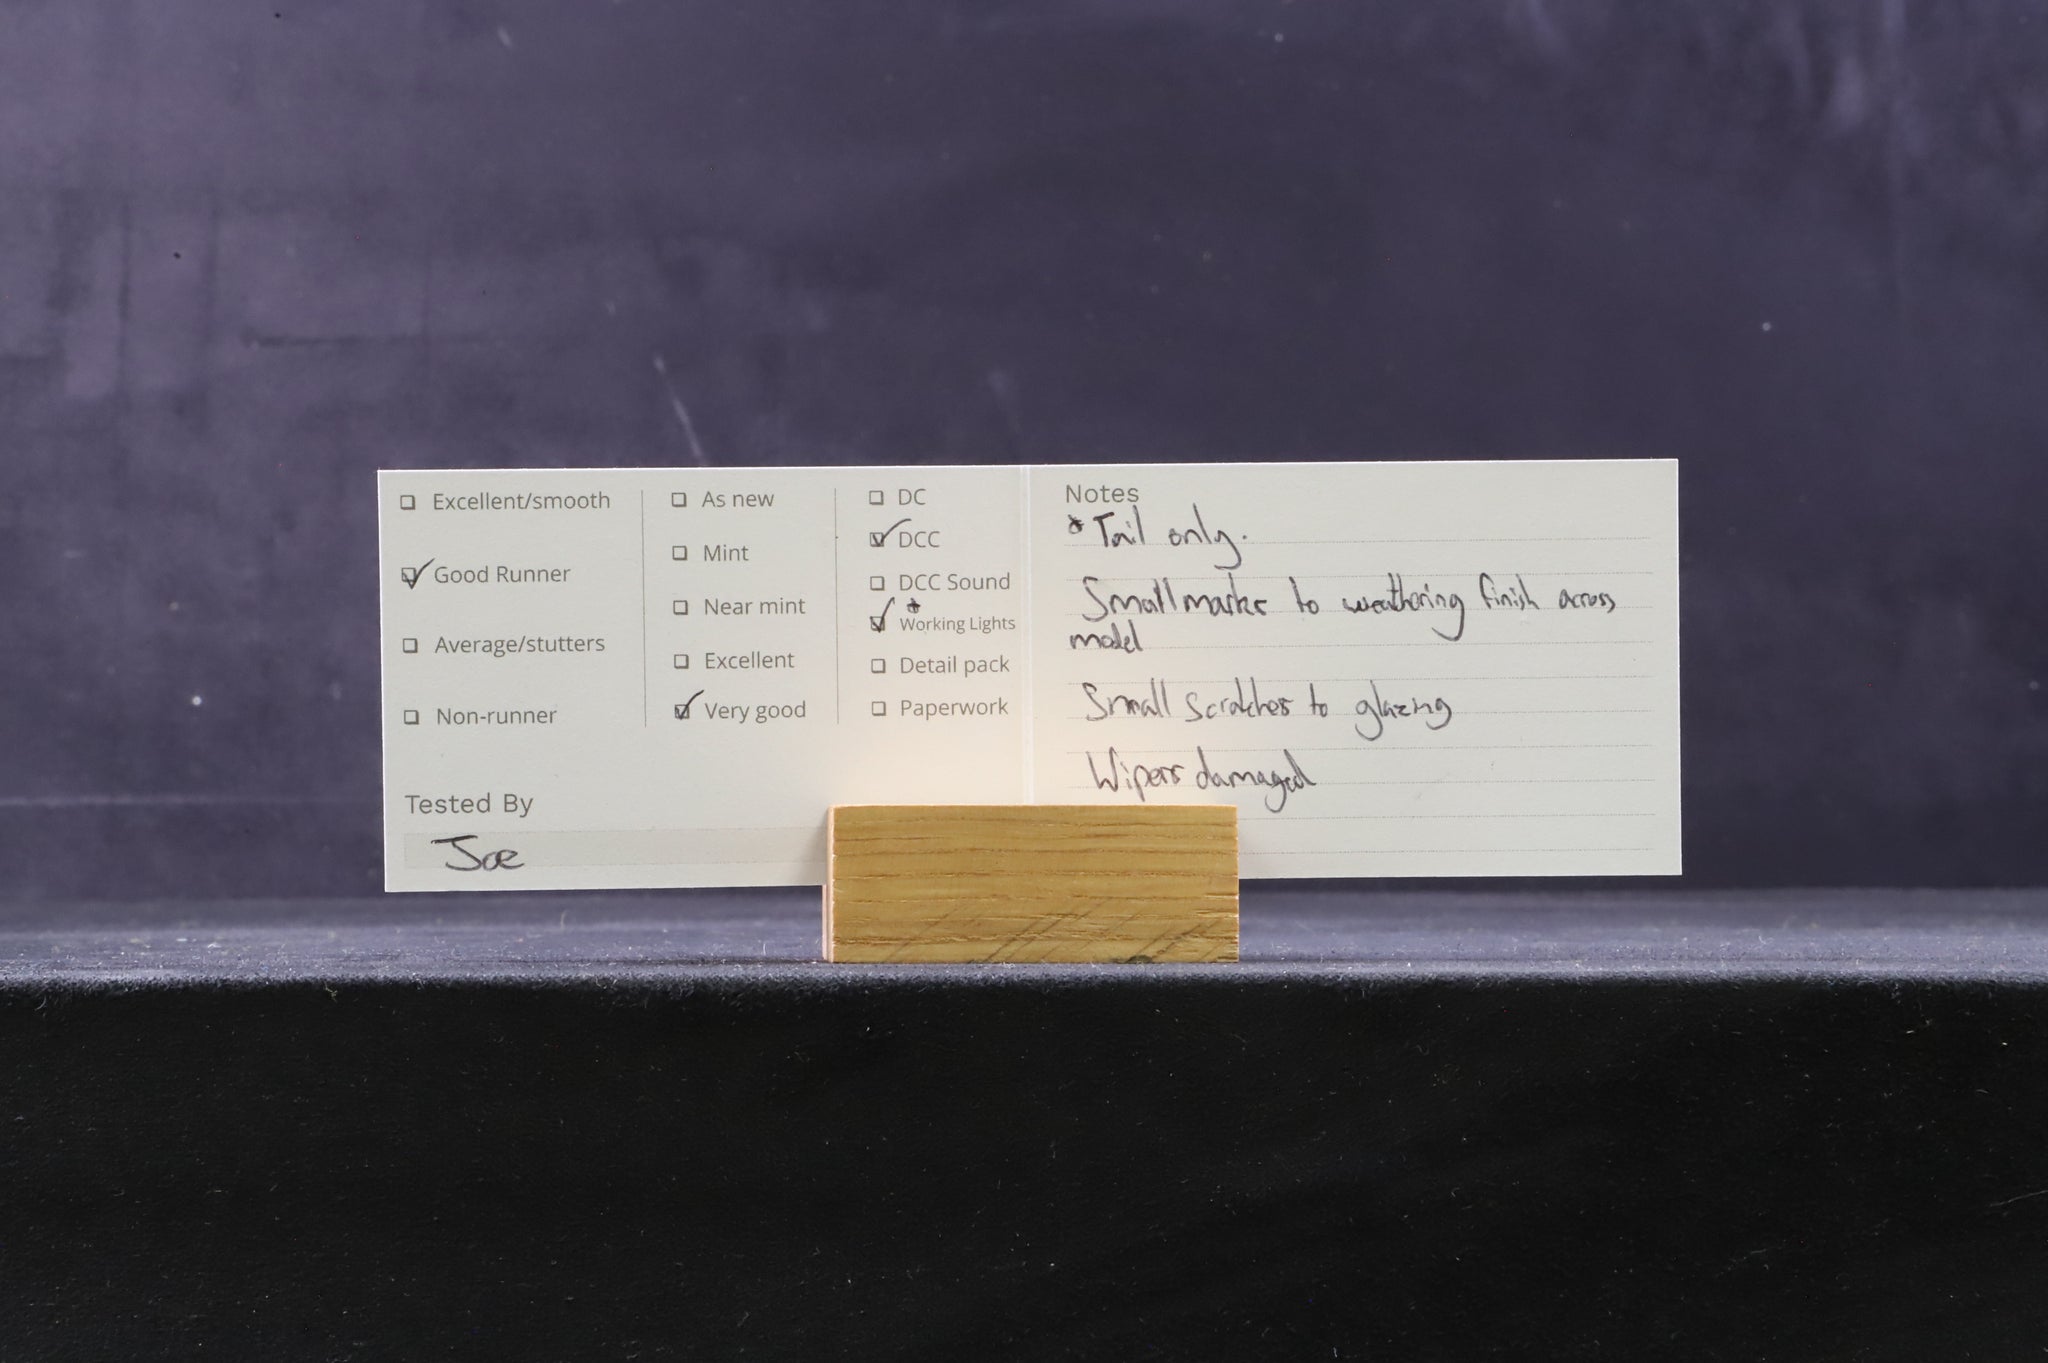 ☐ Excellent/smooth
☑ Good Runner
☐ Average/stutters
☐ Non-runner
☐ As new
☐ Mint
☐ Near mint
☐ Excellent
☑ Very good
☐ DC
☑ DCC
☐ DCC Sound
*
☑ Working Lights
☐ Detail pack
☐ Paperwork
Tested By
Joe
Notes
* Tail only.
Small marks to weathering finish across
model
Small scratches to glazing
Wipers damaged